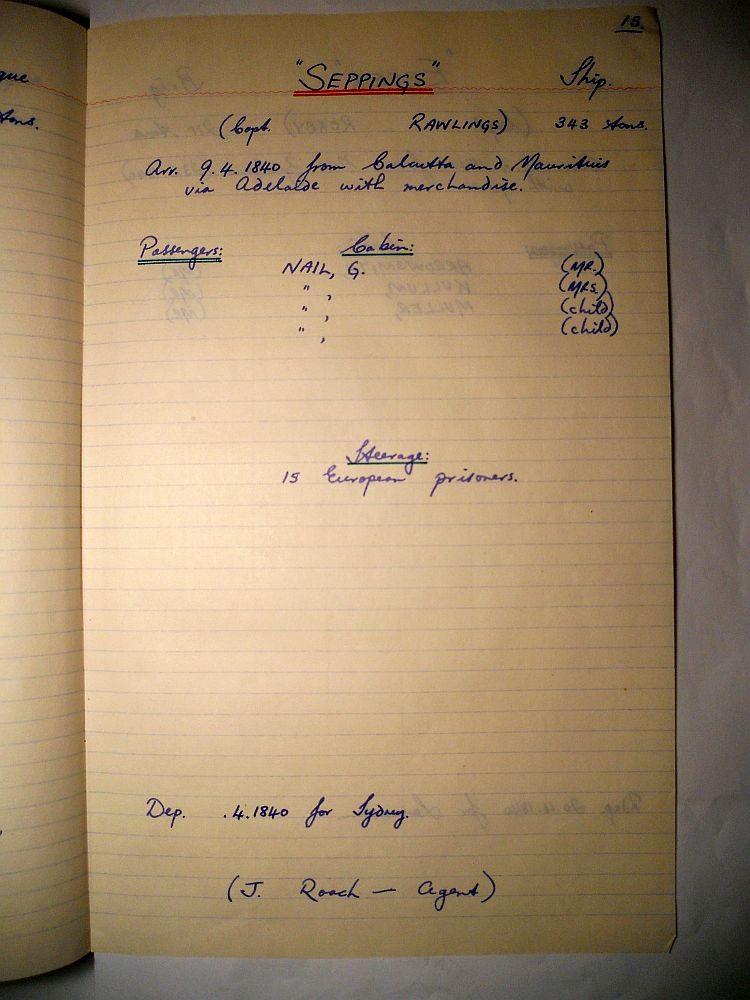 15.
"SEPPINGS" Ship.
(Capt. RAWLINGS) 343 tons.
Arr. 9.4.1840 from Calcutta and Mauritius
via Adelaide with merchandise.
Passengers: Cabin:
NAIL, G. (MR.)
" , (MRS.)
" , (child)
" , (child)
Steerage:
15 European prisoners.
Dep. .4.1840 for Sydney.
(J. Roach — Agent)